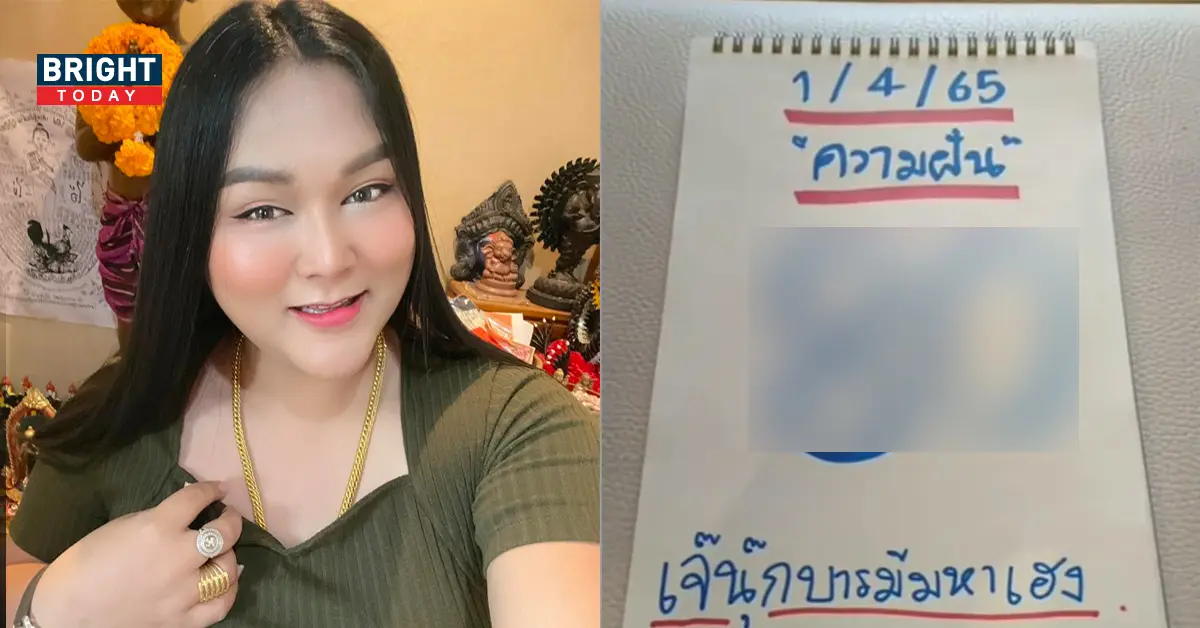 BRIGHT
TODAY
1/4/65
"ความฝัน"
เจ๊นุ๊กบารมีมหาเฮง